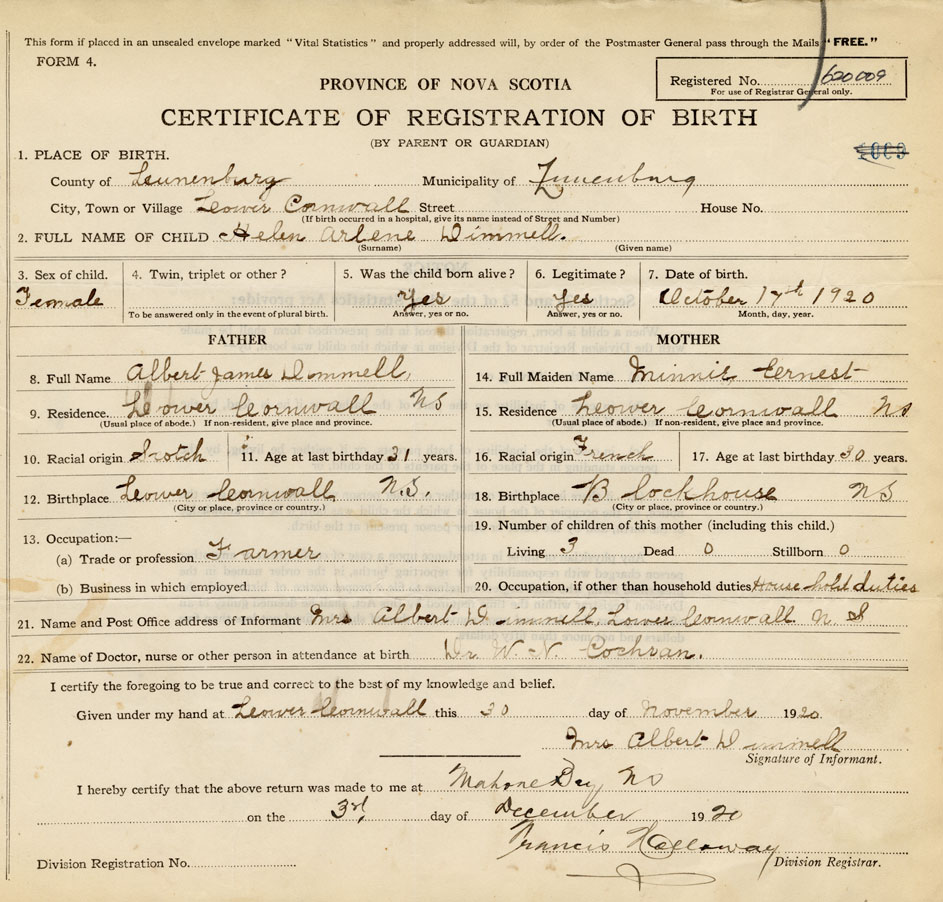 This form if placed in an unsealed envelope marked "Vital Statistics" and properly addressed will, by order of the Postmaster General pass through the Mails "FREE."
FORM 4.
Registered No. 620009
For use of Registrar General only.
PROVINCE OF NOVA SCOTIA
CERTIFICATE OF REGISTRATION OF BIRTH
(BY PARENT OR GUARDIAN)
1. PLACE OF BIRTH.
County of Leunenburg Municipality of Lunenburg
City, Town or Village Lower Cornwall Street House No.
(If birth occurred in a hospital, give its name instead of Street and Number)
2. FULL NAME OF CHILD Helen Arlene Dimmell.
(Surname) (Given name)
3. Sex of child. 4. Twin, triplet or other? 5. Was the child born alive? 6. Legitimate? 7. Date of birth.
Female Yes Yes October 17th 1920
To be answered only in the event of plural birth. Answer, yes or no. Answer, yes or no. Month, day, year.
FATHER
8. Full Name Albert James Dimmell,
9. Residence. Lower Cornwall NS
(Usual place of abode.) If non-resident, give place and province.
10. Racial origin Scotch 11. Age at last birthday 31 years.
12. Birthplace Lower Cornwall N.S.
(City or place, province or country.)
13. Occupation:—
(a) Trade or profession Farmer
(b) Business in which employed
MOTHER
14. Full Maiden Name Minnie Ernest
15. Residence Lower Cornwall NS
(Usual place of abode.) If non-resident, give place and province.
16. Racial origin French 17. Age at last birthday 30 years.
18. Birthplace Blockhouse NS
(City or place, province or country.)
19. Number of children of this mother (including this child.)
Living 3 Dead 0 Stillborn 0
20. Occupation, if other than household duties House hold duties
21. Name and Post Office address of Informant Mrs Albert Dimmell, Lower Cornwall N S
22. Name of Doctor, nurse or other person in attendance at birth Dr W. N. Cochran.
I certify the foregoing to be true and correct to the best of my knowledge and belief.
Given under my hand at Lower Cornwall this 30 day of November 1920.
Mrs Albert Dimmell
Signature of Informant.
I hereby certify that the above return was made to me at Mahone Bay, NS
on the 3rd. day of December 1920
Francis Holloway
Division Registration No. Division Registrar.